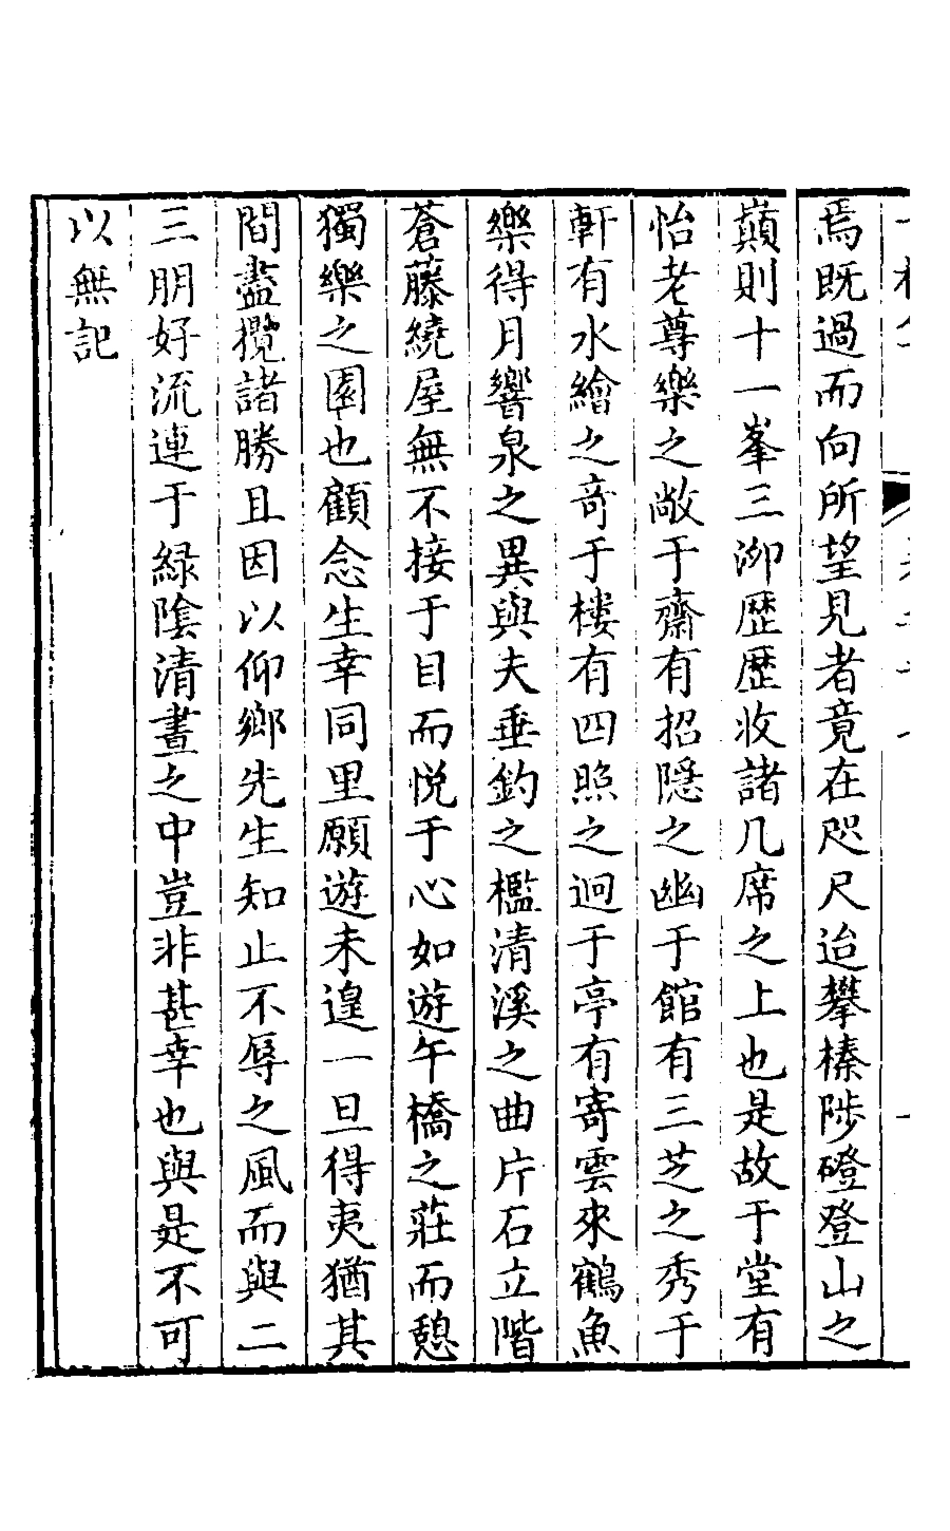 焉既過而向所望見者竟在咫尺迨攀榛陟磴登山之
巔則十一峯三泖歷歷收諸几席之上也是故于堂有
怡老尊樂之敞于齋有招隱之幽于館有三芝之秀于
軒有水繪之奇于樓有四照之迥于亭有寄雲來鶴魚
樂得月響泉之異與夫垂釣之檻清溪之曲片石立階
蒼藤繞屋無不接于目而悅于心如遊午橋之莊而憩
獨樂之園也顧念生幸同里願遊未遑一旦得夷猶其
間盡攬諸勝且因以仰鄉先生知止不辱之風而與二
三朋好流連于綠陰清晝之中豈非甚幸也與是不可
以無記